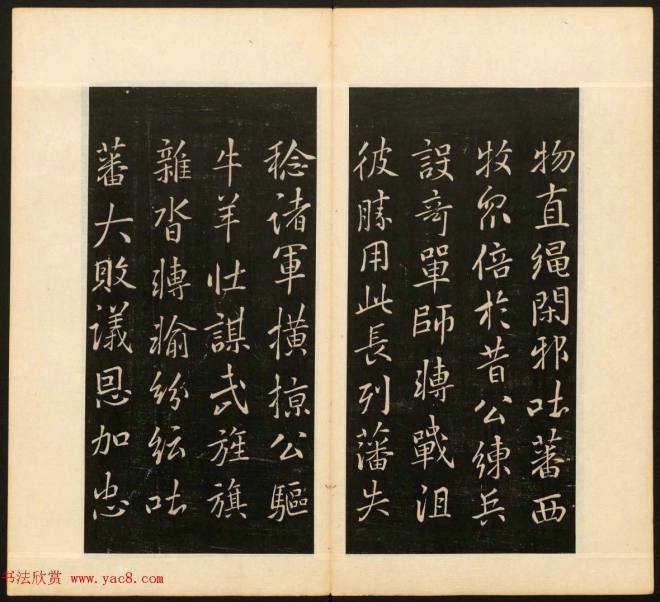 物直繩閑邪吐蕃西
牧眾倍於昔公練兵
設奇單師轉戰沮
彼勝用此長列藩失
稔諸軍橫掠公驅
牛羊壯謀武旌旗
雜沓轉輸紛紜吐
蕃大敗議恩加忠
书法欣赏 www.yac8.com